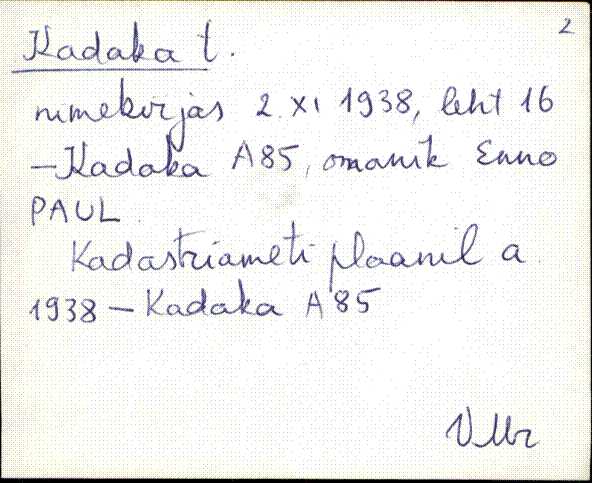 2
Kadaka t.
nimekirjas 2. XI 1938, leht 16
– Kadaka A85, omanik Enno
PAUL.
Kadastriameti plaanil a.
1938 – Kadaka A85